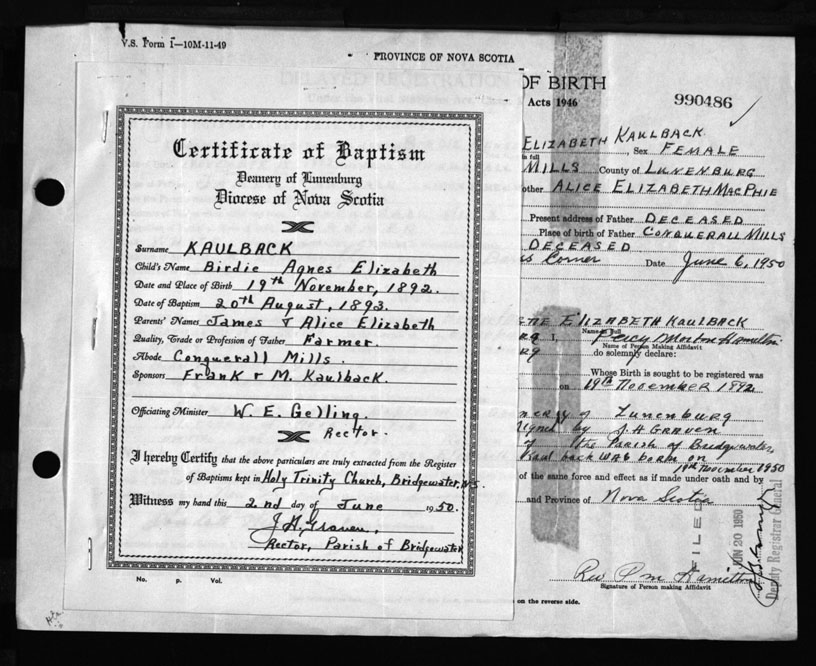 V.S. Form 1—10M-11-49
PROVINCE OF NOVA SCOTIA
OF BIRTH
Acts 1946
990486
Certificate of Baptism
Deanery of Lunenburg
Diocese of Nova Scotia
Surname KAULBACK
Child's Name Birdie Agnes Elizabeth
Date and Place of Birth 19th November, 1892.
Date of Baptism 20th August, 1893.
Parents' Names James & Alice Elizabeth
Quality, Trade or Profession of Father Farmer.
Abode Conquerall Mills.
Sponsors Frank & M. Kaulback.
Officiating Minister W. E. Gelling.
Rector.
I hereby Certify that the above particulars are truly extracted from the Register
of Baptisms kept in Holy Trinity Church, Bridgewater, N.S.
Witness my hand this 2nd day of June 1950.
J.H. Graven
Rector, Parish of Bridgewater
No. P. Vol.
ELIZABETH KAULBACK
in full Sex FEMALE
MILLS County of LUNENBURG
other ALICE ELIZABETH MACPHIE
Present address of Father DECEASED
Place of birth of Father CONQUERALL MILLS
DECEASED
Corner Date June 6, 1950
ELIZABETH KAULBACK
Name in Full
I, Percy Morton Hamilton
Name of Person Making Affidavit
do solemnly declare:
Whose Birth is sought to be registered was
on 19th NOVEMBER 1892
of Lunenburg
by J.H GRAVEN
of the Parish of Bridgewater
Kaulback was born on
19th November 1950
of the same force and effect as if made under oath and by
and Province of Nova Scotia
FILED
JUN 20 1950
Deputy Registrar General
Rev P M Hamilton
Signature of Person making Affidavit
on the reverse side.